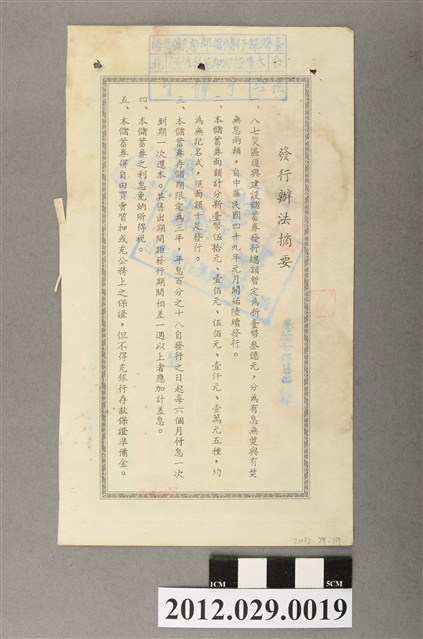 發行辦法摘要
一、八七災區復興建設儲蓄券發行總額暫定為新臺幣叁億元，分為有息無獎與有獎
無息兩類，自中華民國四十九年元月開始陸續發行。
二、本儲蓄券面額計分新臺幣伍拾元、壹佰元、伍佰元、壹仟元、壹萬元五種，均
為無記名式，照面額十足發行。
三、本儲蓄券存儲期限定為三年，年息百分之十八自發行之日起每六個月付息一次
到期一次還本。其售出期間距發行期間相差一週以上者應加計差息。
四、本儲蓄券之利息免納所得稅。
五、本儲蓄券得自由買賣質押或充公務上之保證，但不得充銀行存款保證準備金。
2012.29.19
1CM
5CM
2012.029.0019